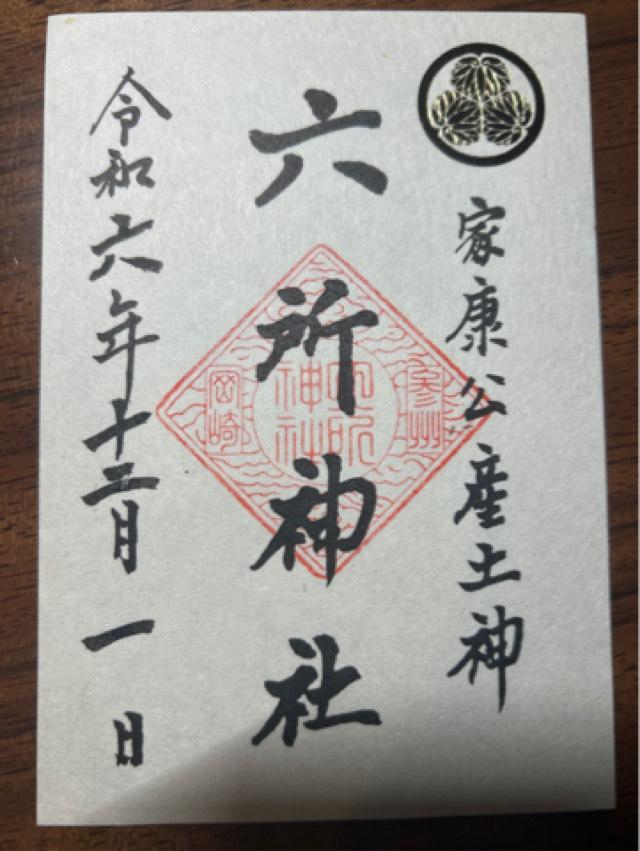 家康公産土神
六所神社
参州
六所
神社
岡崎
令和六年十二月一日